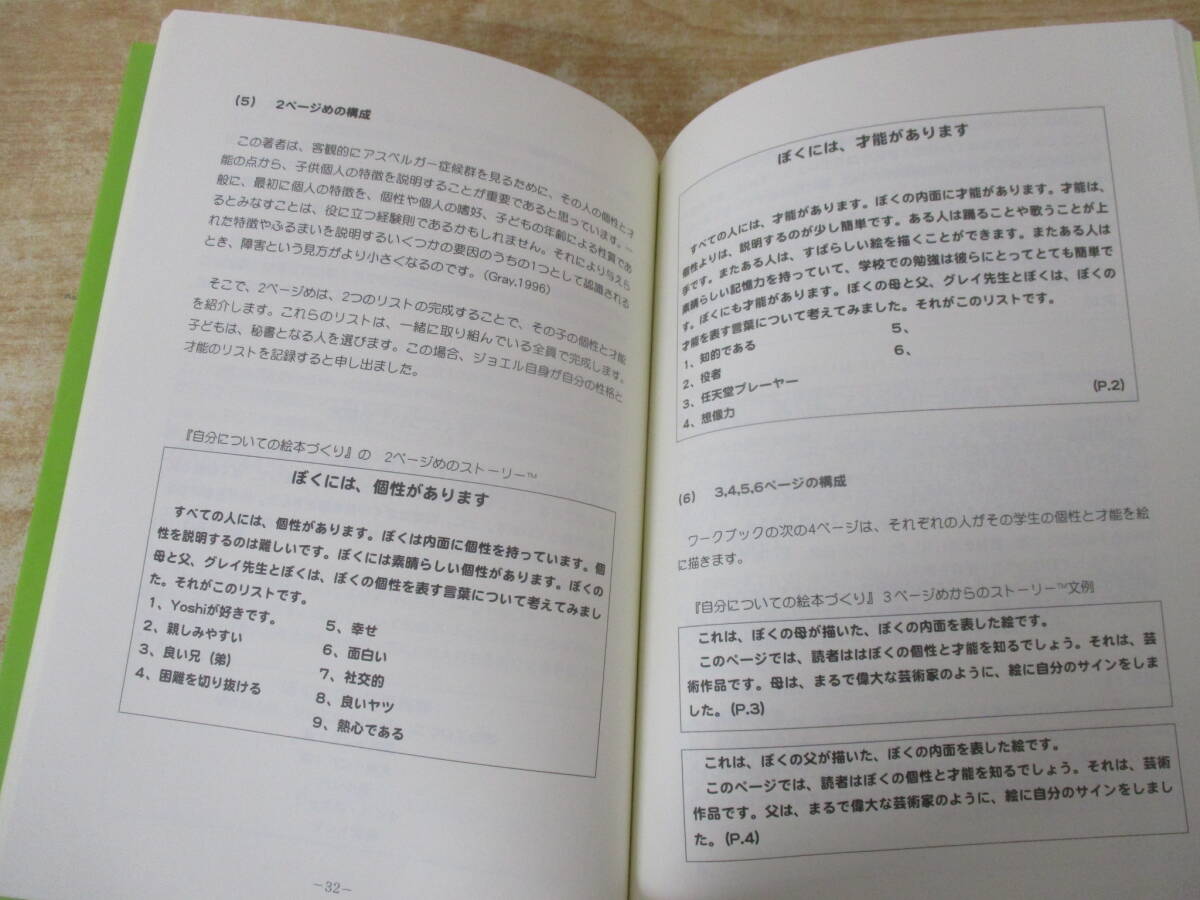 (5) 2ページめの構成
この著者は、客観的にアスペルガー症候群を見るために、その人の個性と才
能の点から、子供個人の特徴を説明することが重要であると思っています。一
般に、最初に個人の特徴を、個性や個人の嗜好、子どもの年齢による性質であ
るとみなすことは、役に立つ経験則であるかもしれません。それにより与えら
れた特徴やふるまいを説明するいくつかの要因のうちの1つとして認識される
とき、障害という見方がより小さくなるのです。(Gray.1996)
そこで、2ページめは、2つのリストの完成することで、その子の個性と才能
を紹介します。これらのリストは、一緒に取り組んでいる全員で完成します。
子どもは、秘書となる人を選びます。この場合、ジョエル自身が自分の性格と
才能のリストを記録すると申し出ました。
『自分についての絵本づくり』の 2ページめのストーリー™
ぼくには、個性があります
すべての人には、個性があります。ぼくは内面に個性を持っています。個
性を説明するのは難しいです。ぼくには素晴らしい個性があります。ぼくの
母と父、グレイ先生とぼくは、ぼくの個性を表す言葉について考えてみまし
た。それがこのリストです。
1、Yoshiが好きです。
2、親しみやすい
3、良い兄(弟)
4、困難を切り抜ける
5、幸せ
6、面白い
7、社交的
8、良いヤツ
9、熱心である
－32－
ぼくには、才能があります
すべての人には、才能があります。ぼくの内面に才能があります。才能は、
個性よりは、説明するのが少し簡単です。ある人は踊ることや歌うことが上
手です。またある人は、すばらしい絵を描くことができます。またある人は
素晴らしい記憶力を持っていて、学校での勉強は彼らにとってとても簡単で
す。ぼくにも才能があります。ぼくの母と父、グレイ先生とぼくは、ぼくの
才能を表す言葉について考えてみました。それがこのリストです。
1、知的である
2、役者
3、任天堂プレーヤー
4、想像力
5、
6、
(P.2)
(6) 3,4,5,6ページの構成
ワークブックの次の4ページは、それぞれの人がその学生の個性と才能を絵
に描きます。
『自分についての絵本づくり』3ページめからのストーリー™文例
これは、ぼくの母が描いた、ぼくの内面を表した絵です。
このページでは、読者ははぼくの個性と才能を知るでしょう。それは、芸
術作品です。母は、まるで偉大な芸術家のように、絵に自分のサインをしま
した。(P.3)
これは、ぼくの父が描いた、ぼくの内面を表した絵です。
このページでは、読者はぼくの個性と才能を知るでしょう。それは、芸術
作品です。父は、まるで偉大な芸術家のように、絵に自分のサインをしまし
た。(P.4)